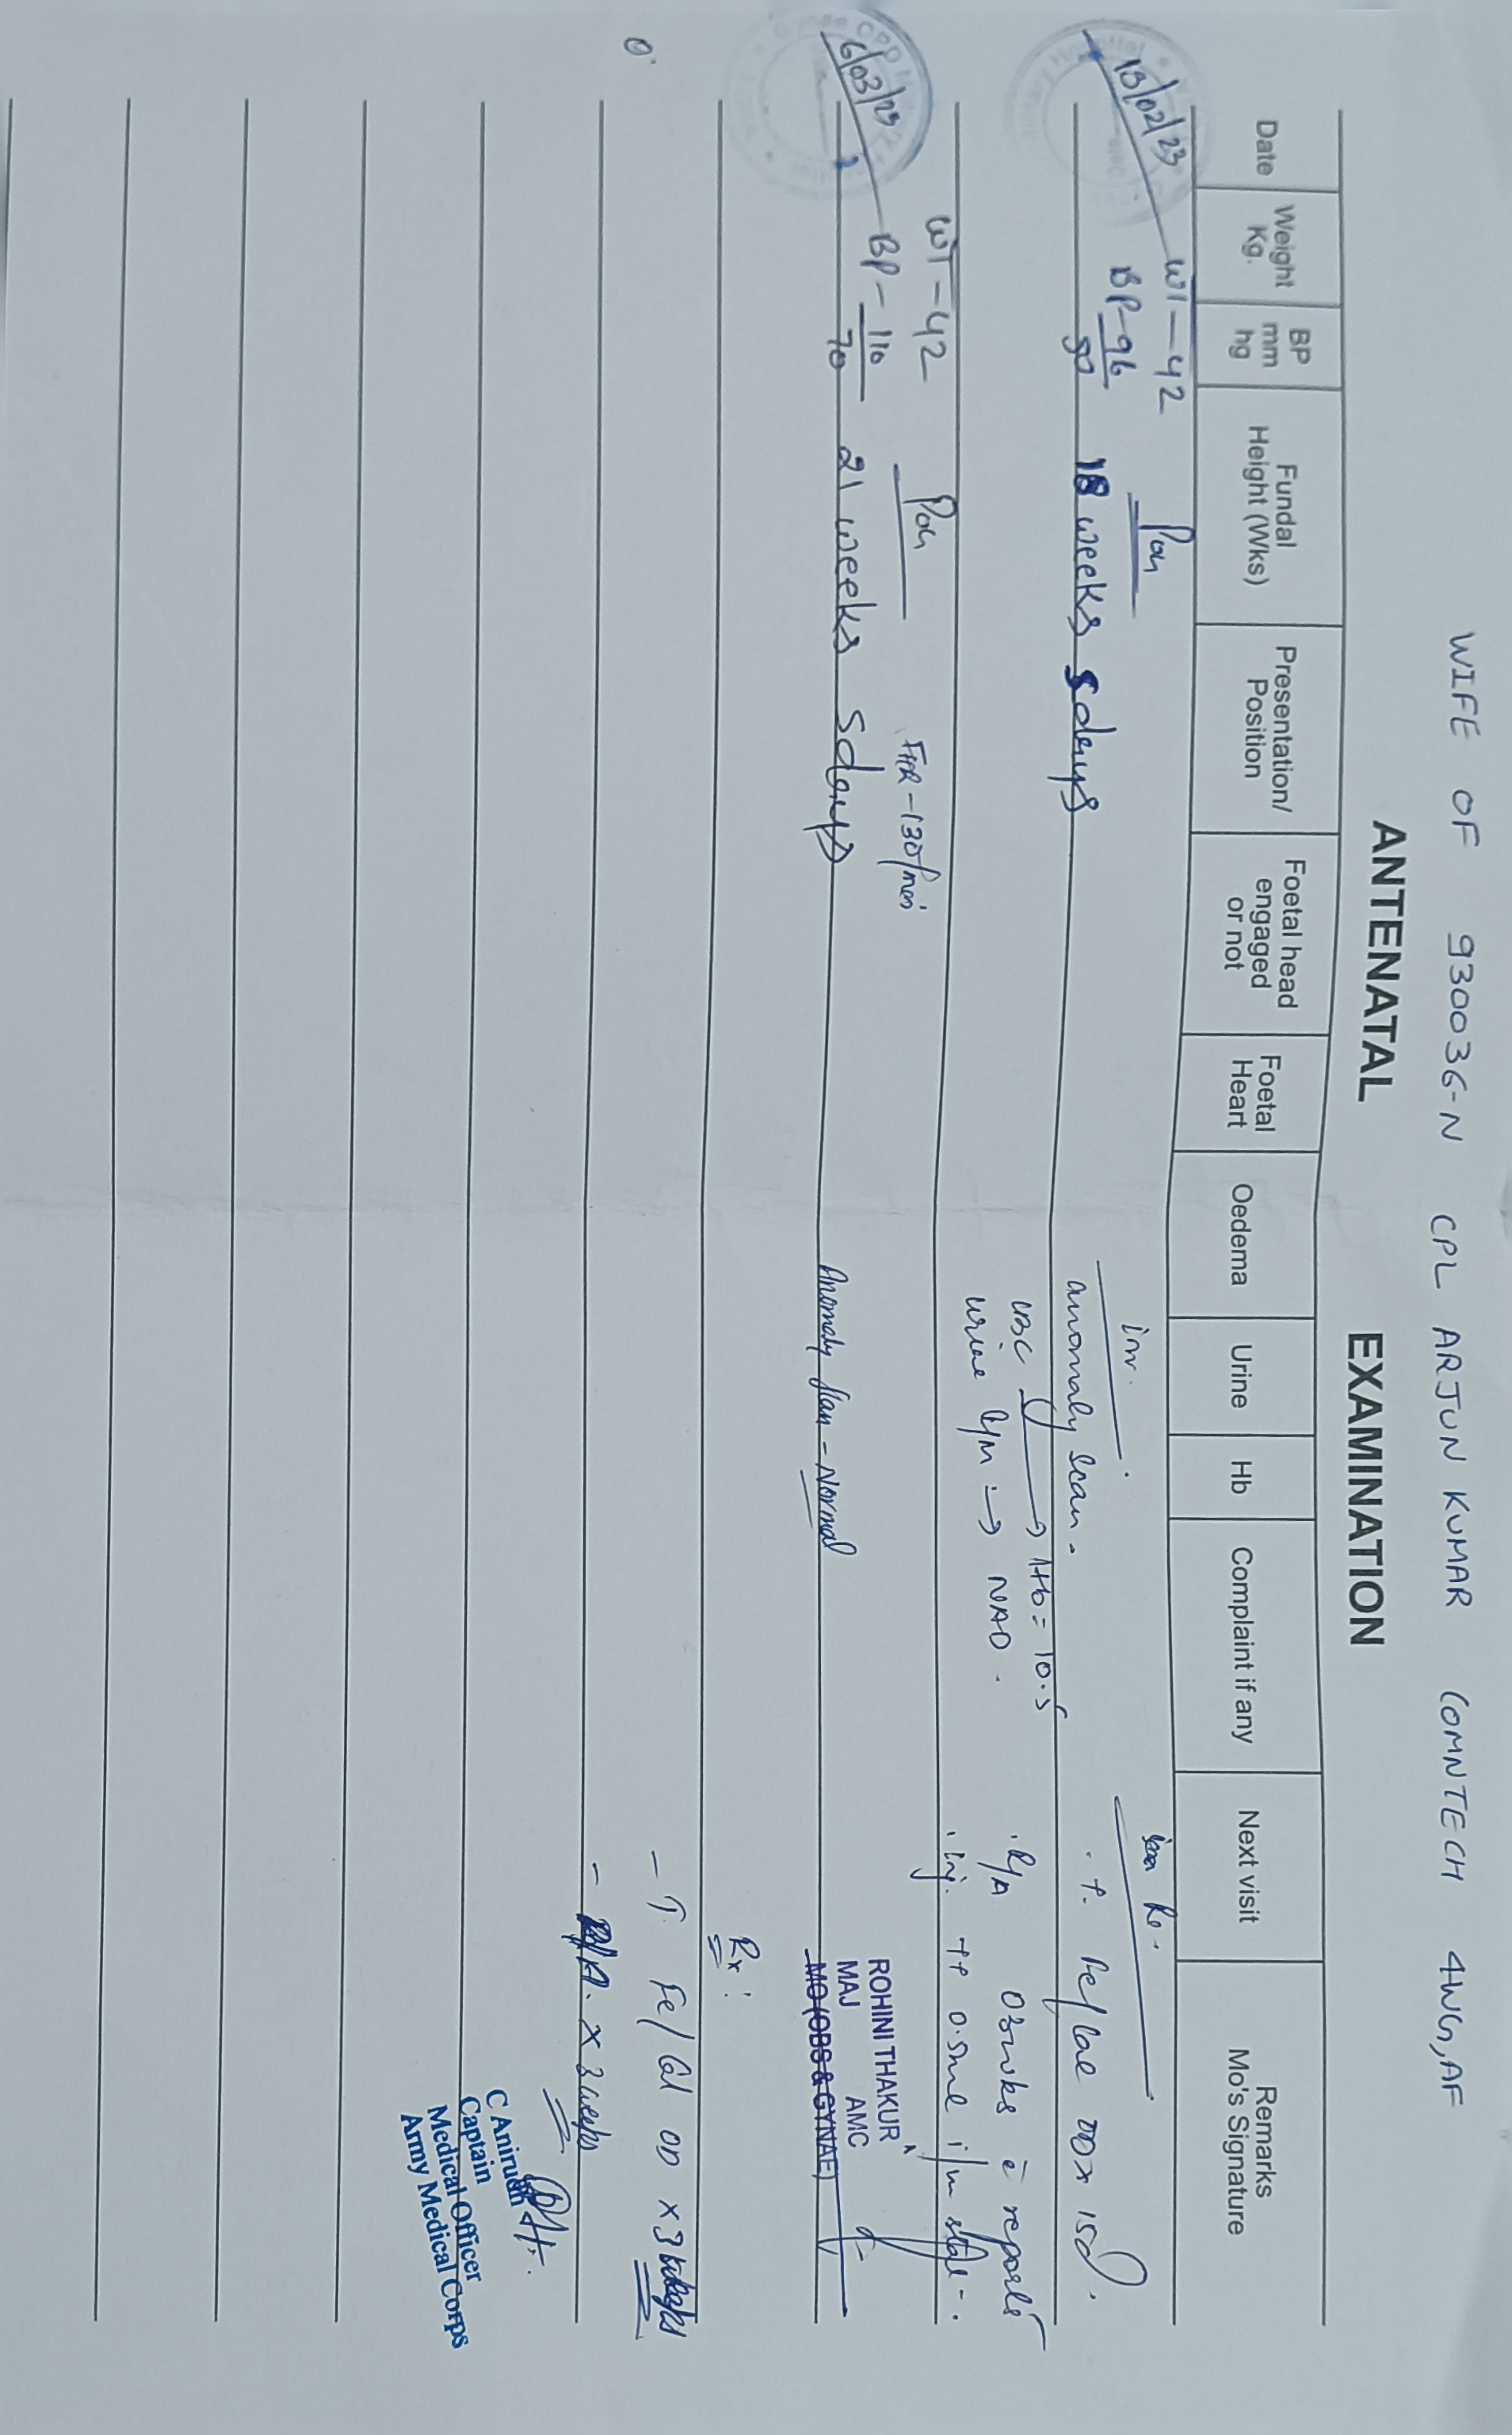 WIFE OF 930036-N CPL ARJUN KUMAR COMNTECH 4WG, AF
ANTENATAL EXAMINATION
Date
Weight Kg.
BP mm hg
Fundal Height (Wks)
Presentation/ Position
Foetal head engaged or not
Foetal Heart
Oedema
Urine
Hb
Complaint if any
Next visit
Remarks Mo's Signature
WT-42
BP-96
POG
18 weeks 5 days
inv.
anomaly scan.
Hb = 10.5
urine R/M → NAD.
Rx.
R/A 03wks c̄ reports
Inj. TT 0.5ml i/m stat.
WT-42
6/03/23
BP-110
70
POG
21 weeks 5days
FHR-130/min
Anomaly scan - Normal
ROHINI THAKUR
MAJ AMC
MO (OBS & GYNAE)
Rx:
- T. Fe/Cal OD x 3 weeks
- x 3 weeks
C Anirudh
Captain
Medical Officer
Army Medical Corps